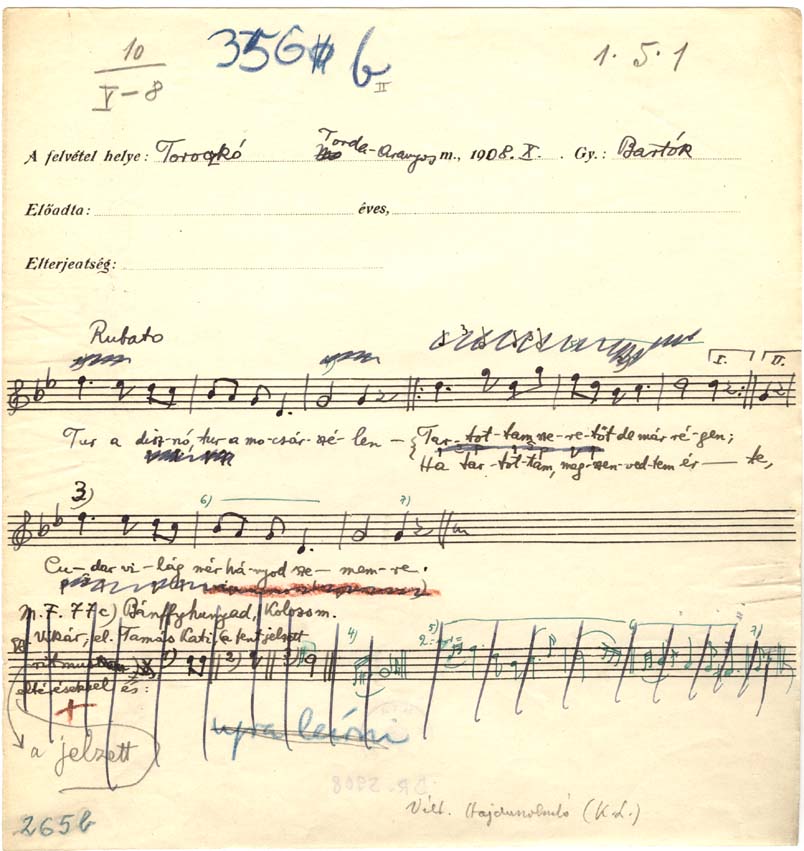 10 356 b 1. 5. 1
V-8 II
A felvétel helye: Toroczkó Torda-Aranyos m., 1908. X. Gy.: Bartók
Előadta: éves,
Elterjeatség:
Rubato
I. II.
Tur a disz-nó, tur a mo-csár-szé-len — Tar-tot-tam sze-re-tőt de már ré-gen;
Ha tar-tot-tam, meg-szen-ved-tem ér — te,
3) 6) 7)
Cu-dar vi-lág mér há-nyod sze-mem-re.
M.F. 77c) Bánffyhunyad, Kolozs m.
Vikár; el. Tamás Kati; a fent jelzett
ritmus 1) 2) 3) 4) 5) 6 7)
eltérésekkel és:
a jelzett
ujra leírni
Vált. Hajdu (K.L.)
265b